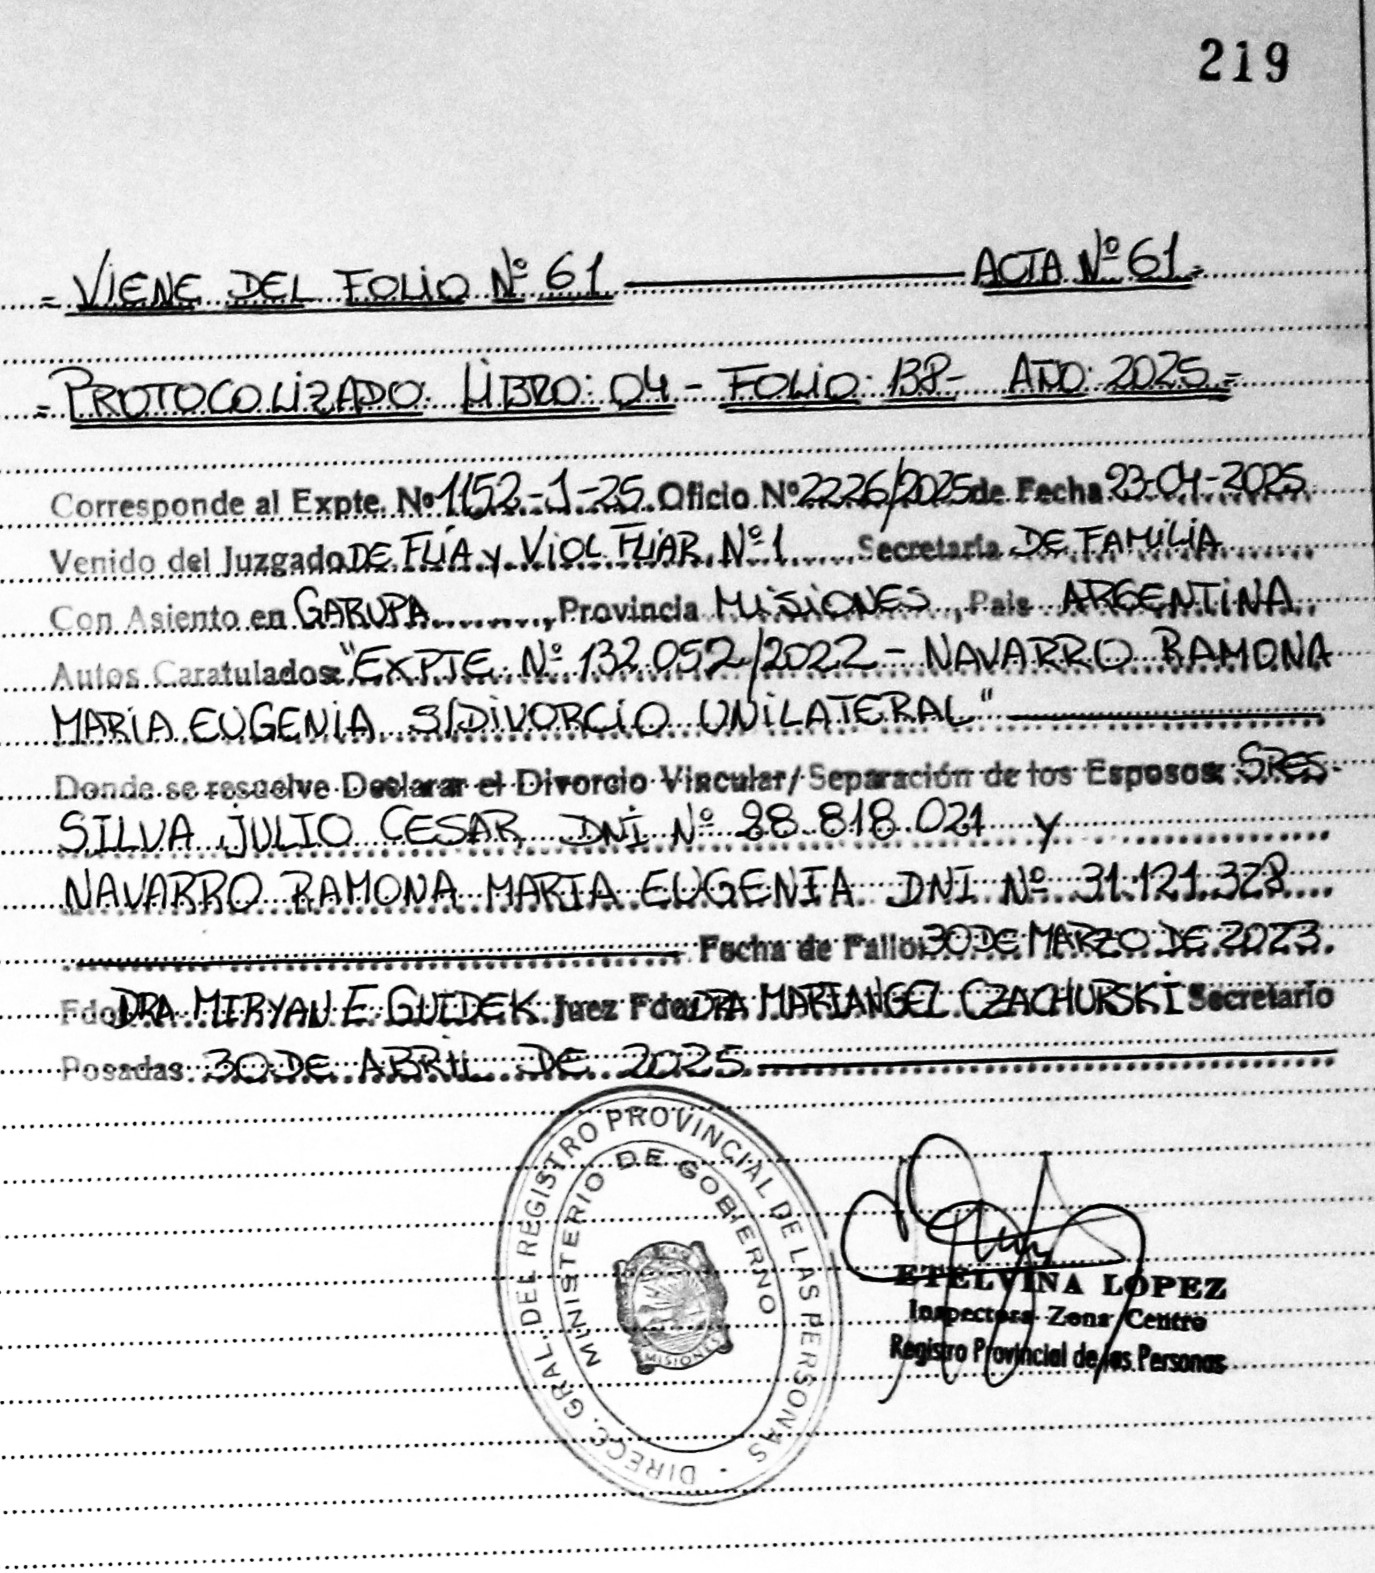 219
= VIENE DEL FOLIO Nº 61 ——— ACTA Nº 61 =
= PROTOCOLIZADO: LIBRO: 04 - FOLIO: 138 - AÑO: 2025 =
Corresponde al Expte. Nº 1152-1-25 Oficio Nº 2226/2025 de Fecha 23-04-2025
Venido del Juzgado DE FLIA y VIOL FLIAR. Nº 1 Secretaría DE FAMILIA
Con Asiento en GARUPA, Provincia MISIONES, País ARGENTINA
Autos Caratulados: "EXPTE Nº 132.052/2022 - NAVARRO RAMONA
MARIA EUGENIA S/DIVORCIO UNILATERAL"
Donde se resuelve Declarar el Divorcio Vincular/Separación de los Esposos: SRES
SILVA JULIO CESAR DNI Nº 28.818.021 y
NAVARRO RAMONA MARIA EUGENIA DNI Nº 31.121.328
Fecha de Fallo: 30 DE MARZO DE 2023.
Fdo DRA MIRYAN E. GUIDEK Juez Fdo: DRA MARIANGEL CZACHURSKI Secretario
Posadas: 30 DE ABRIL DE 2025
DIRECC. GRAL. DEL REGISTRO PROVINCIAL DE LAS PERSONAS
MINISTERIO DE GOBIERNO
MISIONES
ETELVINA LOPEZ
Inspectora Zona Centro
Registro Provincial de las Personas